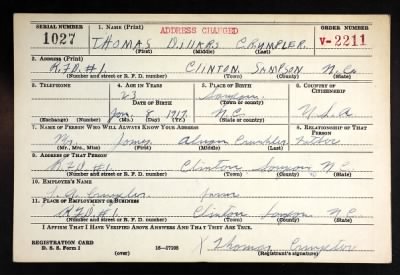 SERIAL NUMBER
1. NAME (Print)
ADDRESS CHANGED
ORDER NUMBER
1027
THOMAS DILLARS CRUMPLER
V-2211
(First) (Middle) (Last)
2. ADDRESS (Print)
R.F.D. #1. CLINTON, SAMPSON N.C.
(Number and street or R. F. D. number) (Town) (County) (State)
3. TELEPHONE
4. AGE IN YEARS
5. PLACE OF BIRTH
6. COUNTRY OF CITIZENSHIP
23
Sampson
DATE OF BIRTH
(Town or county)
Jan. 8 1917
N.C.
U.S.A.
(Exchange) (Number) (Mo.) (Day) (Yr.) (State or country)
7. NAME OF PERSON WHO WILL ALWAYS KNOW YOUR ADDRESS
8. RELATIONSHIP OF THAT PERSON
Mr. James Crumpler Father
(Mr., Mrs., Miss) (First) (Middle) (Last)
9. ADDRESS OF THAT PERSON
R.F.D. #1. Clinton Sampson N.C.
(Number and street or R. F. D. number) (Town) (County) (State)
10. EMPLOYER'S NAME
Crumpler farm
11. PLACE OF EMPLOYMENT OR BUSINESS
R.F.D. #1. Clinton Sampson N.C.
(Number and street or R. F. D. number) (Town) (County) (State)
I AFFIRM THAT I HAVE VERIFIED ABOVE ANSWERS AND THAT THEY ARE TRUE.
REGISTRATION CARD
D. S. S. Form 1
(over)
16—17105
X Thomas Crumpler
(Registrant's signature)